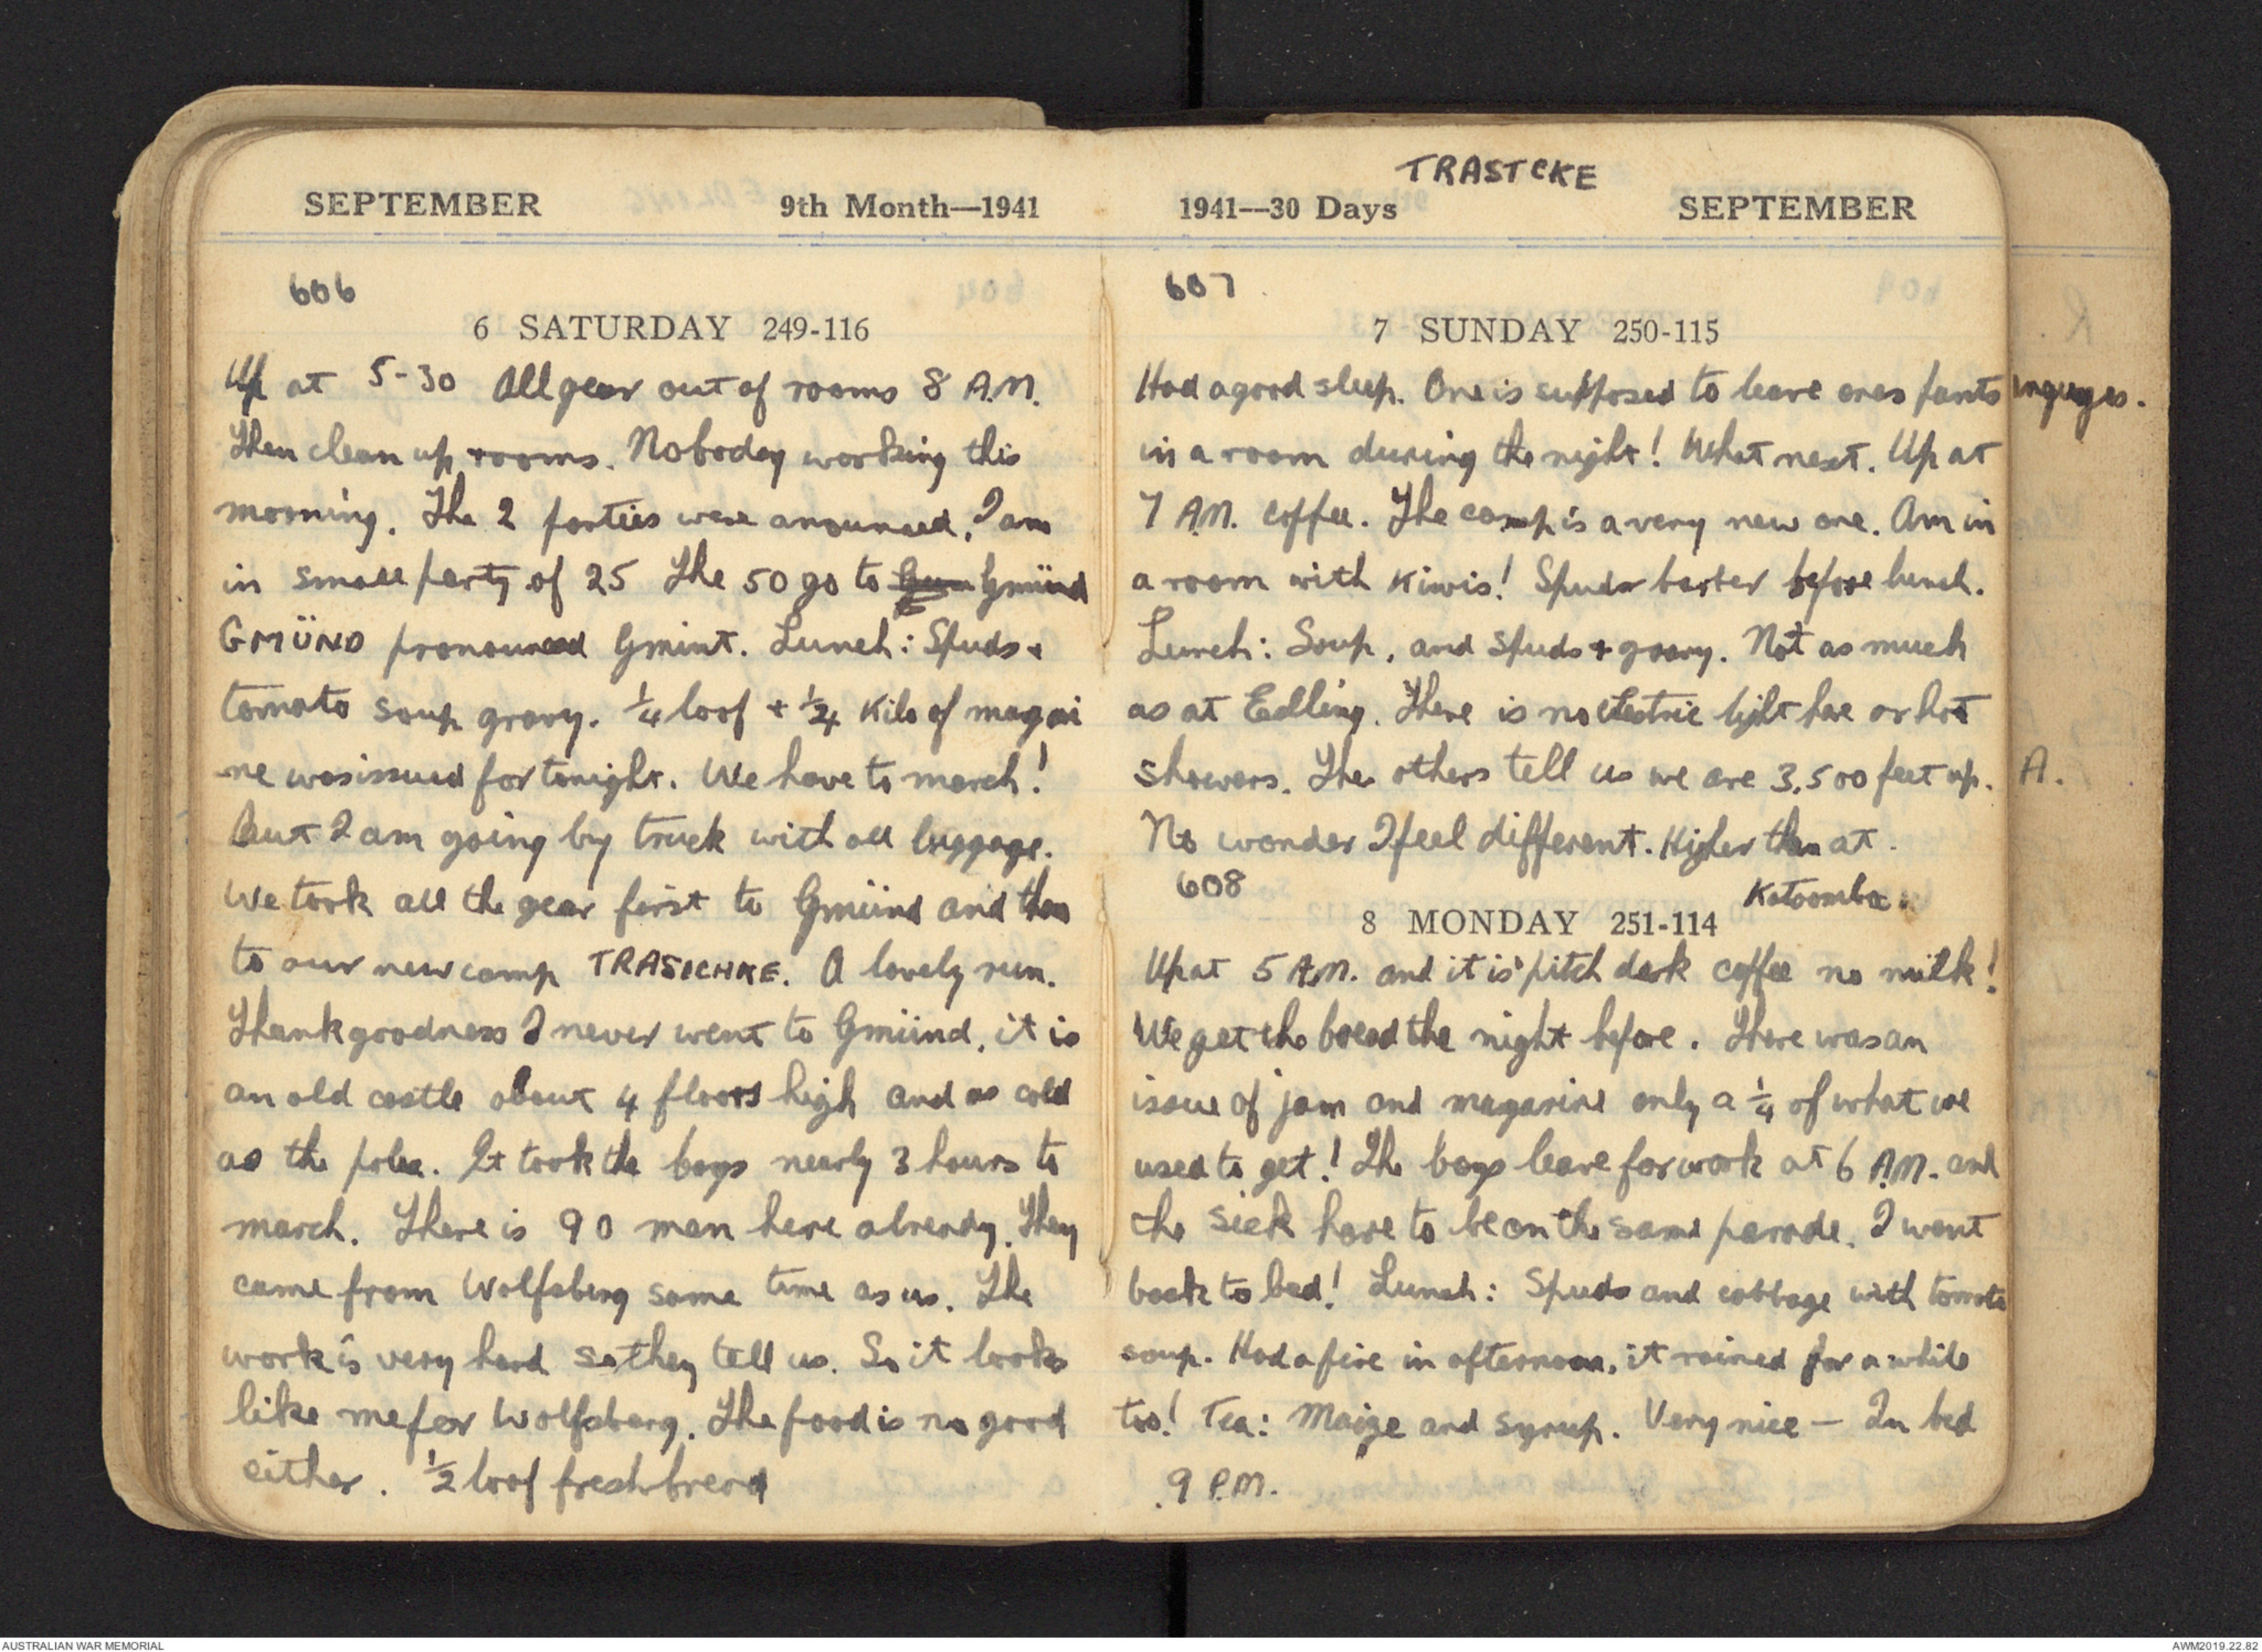 SEPTEMBER 9th Month—1941
606
6 SATURDAY 249-116
Up at 5-30 All gear out of rooms 8 A.M.
Then clean up rooms. Nobody working this
morning. The 2 parties were anounced, I am
in small party of 25 The 50 go to Gmünd
GMÜND pronounced Gmint. Lunch: Spuds +
tomato soup gravy. ¼ loaf + ½ Kilo of magari
ne was issued for tonight. We have to march!
But I am going by truck with all luggage.
We took all the gear first to Gmünd and then
to our new camp TRASICHKE. A lovely run.
Thank goodness I never went to Gmünd, it is
an old castle about 4 floors high and as cold
as the poles. It took the boys nearly 3 hours to
march. There is 90 men here already. They
came from Wolfsberg same time as us. The
work is very hard so they tell us. So it looks
like me for Wolfsberg. The food is no good
either. ½ loaf fresh bread
TRASTCKE
1941—30 Days SEPTEMBER
607
7 SUNDAY 250-115
Had a good sleep. One is supposed to leave ones pants
in a room during the night! What next. Up at
7 A.M. coffee. The camp is a very new one. Am in
a room with Kiwis! Spuds barter before lunch.
Lunch: Soup, and spuds + gravy. Not as much
as at Edling. There is no electric light here or hot
showers. The others tell us we are 3,500 feet up.
No wonder I feel different. Higher than at
Katoomba.
608
8 MONDAY 251-114
Up at 5 A.M. and it is pitch dark coffee no milk!
We get the bread the night before. There was an
issue of jam and magarine only a ¼ of what we
used to get! The boys leave for work at 6 A.M. and
the sick have to be on the same parade. I went
back to bed! Lunch: Spuds and cabbage with tomato
soup. Had a fire in afternoon, it rained for a while
too! Tea: Maize and syrup. Very nice — In bed
9 P.M.
A.
AUSTRALIAN WAR MEMORIAL
AWM2019.22.82